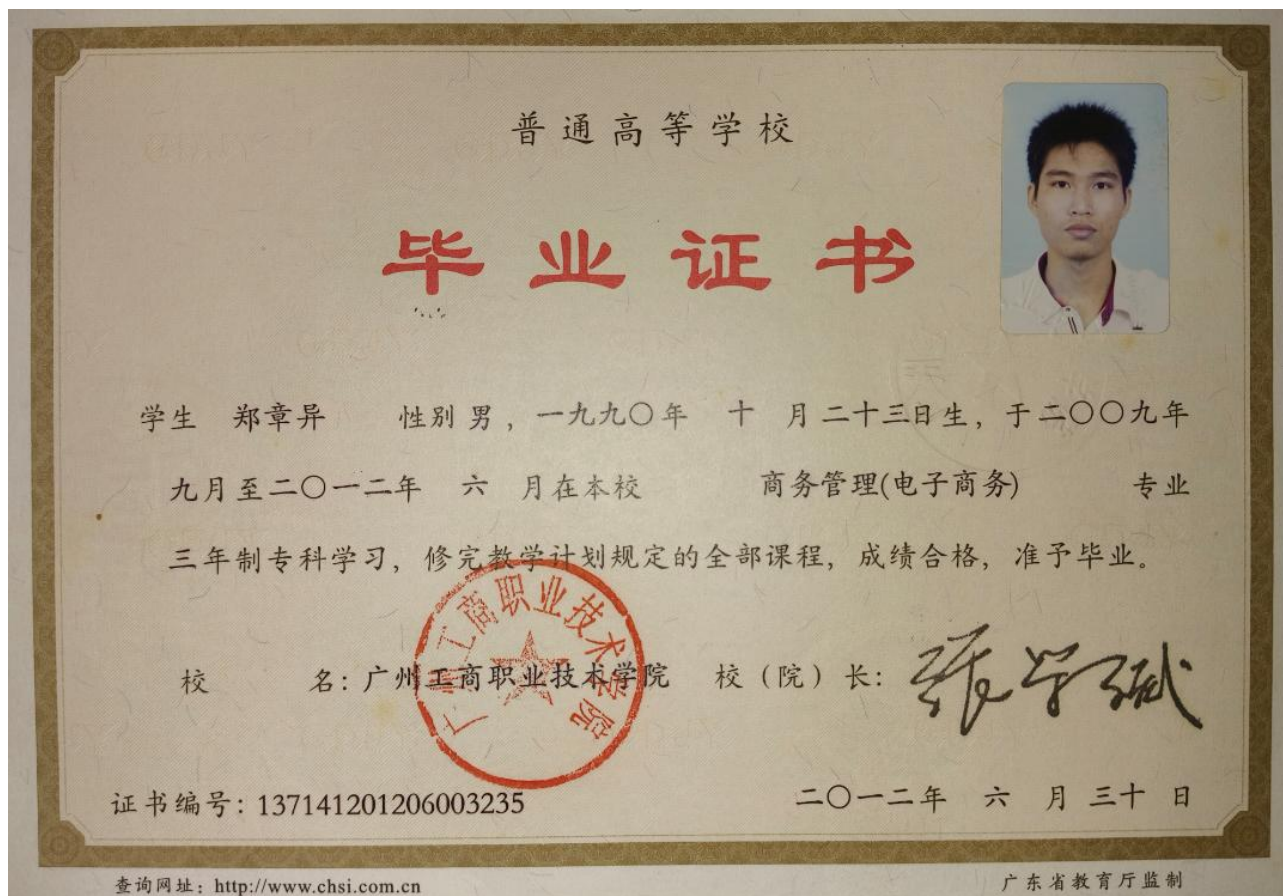 普通高等学校
毕业证书
学生 郑章异 性别 男，一九九〇年 十 月二十三日生，于二〇〇九年
九月至二〇一二年 六 月在本校 商务管理(电子商务) 专业
三年制专科学习，修完教学计划规定的全部课程，成绩合格，准予毕业。
广州工商职业技术学院
校 名：广州工商职业技术学院 校（院）长：
证书编号：137141201206003235 二〇一二年 六 月 三十 日
查询网址：http://www.chsi.com.cn 广东省教育厅监制